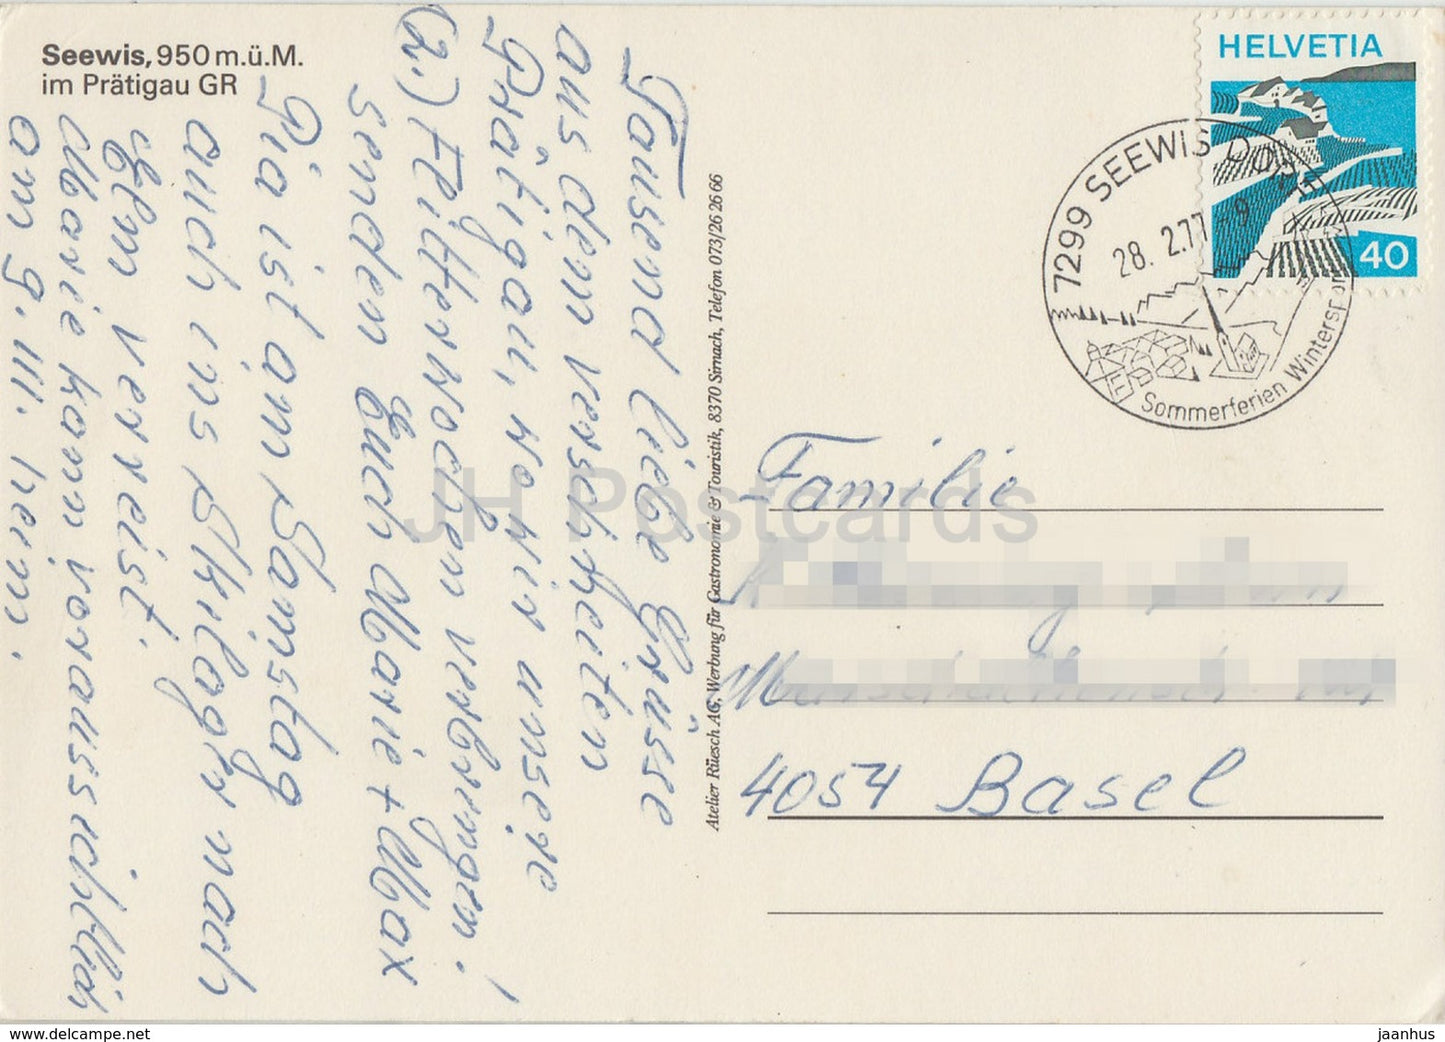 Seewis, 950 m.ü.M.
im Prätigau GR
Tausend liebe Grüsse
aus dem verschneiten
Prätigau, wo wir unsere
(2.) Flitterwochen verbringen!
senden Euch Marie + Max
Pia ist am Samstag
auch ins Skilager nach
Elm verreist.
Marie kam voraussichtlich
am 9. III. heim.
Atelier Rüesch AG, Werbung für Gastronomie & Touristik, 8370 Sirnach, Telefon 073/26 26 66
HELVETIA
40
7299 SEEWIS DORF
28. 2.77 - 9
Sommerferien Wintersport
Familie
4054 Basel
JH Postcards
https://jhpostcards.com
jaanhus